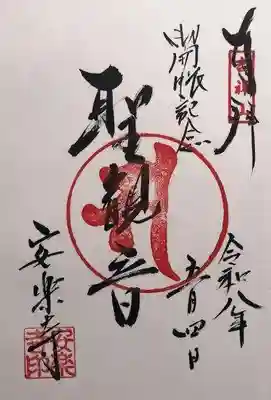 奉拝
御開帳記念
聖観音
令和八年
五月四日
安楽寺